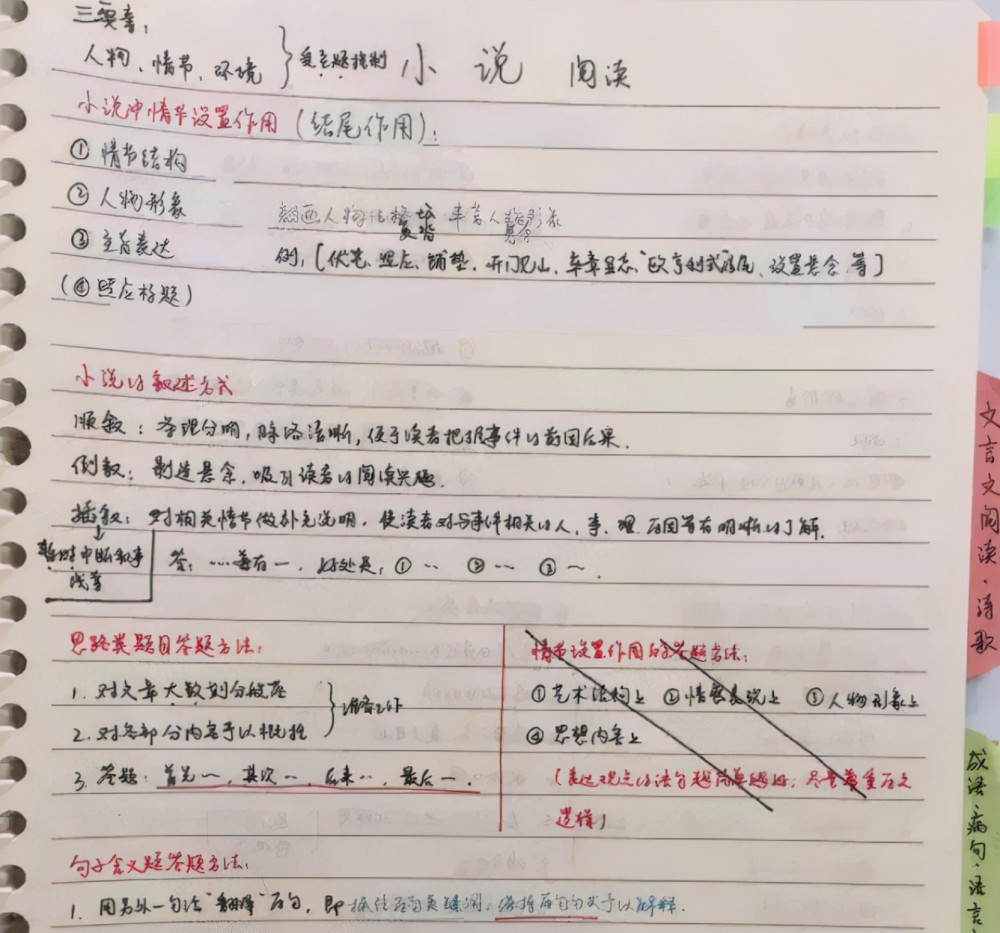 三要素：
人物、情节、环境 } 受主题控制 小说 阅读
小说中情节设置作用（结尾作用）：
① 情节结构
② 人物形象 刻画人物性格 丰富人物形象
③ 主旨表达 例，[伏笔、照应、铺垫、开门见山、卒章显志、"欧亨利式"结尾、设置悬念 等]
（④ 照应标题）
小说的叙述方式
顺叙：条理分明，脉络清晰，便于读者把握事件的前因后果.
倒叙：制造悬念，吸引读者的阅读兴趣.
插叙：对相关情节做补充说明，使读者对与事件相关的人、事、理、原因等有明晰的了解.
暂时中断叙事
答：……有一. 好处是：① ·· ② ·· ③ ~.
思路类题目答题方法：
1. 对文章大致划分段落
2. 对各部分内容予以概括
3. 答题：首先~，其次~，后来··，最后~.
情节设置作用的答题方法：
① 艺术结构上 ② 情感表现上 ③ 人物形象上
④ 思想内容上
（表达观点的语句越简单越好，尽量尊重原文
选择）
句子含义题答题方法：
1. 用另外一句话"翻译"原句，即抓住原句关键词，给予以解释.
文言文阅读·诗歌
成语·病句·语言